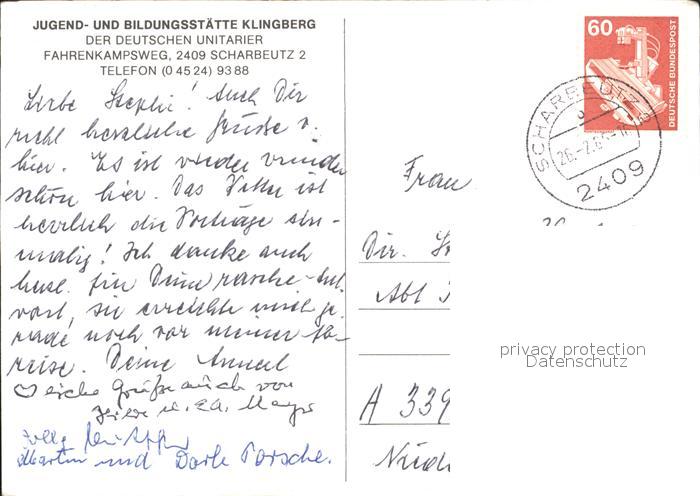 JUGEND- UND BILDUNGSSTÄTTE KLINGBERG
DER DEUTSCHEN UNITARIER
FAHRENKAMPSWEG, 2409 SCHARBEUTZ 2
TELEFON (0 45 24) 93 88
Liebe Stephi! Auch Dir
recht herzliche Grüße v.
hier. Es ist wieder wunder
schön hier. Das Wetter ist
herrlich die Vorträge ein-
malig! Ich danke auch
herzl. für Deine rasche Ant-
wort, sie erreichte mich ge-
rade noch vor meiner Ab-
reise. Deine
♡liche Grüße auch von
Martin und Dorle Porsche.
60
DEUTSCHE BUNDESPOST
SCHARBEUTZ 2
26.-2.
2409
Frau
Dir.
Abt
A 339
privacy protection
Datenschutz